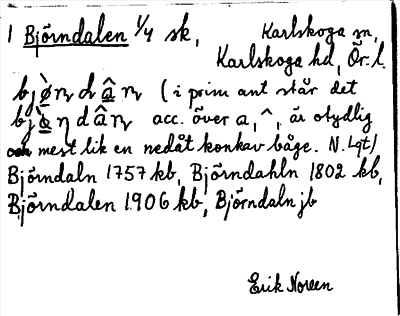 1 Björndalen 1/4 sk, Karlskoga sn,
Karlskoga hd, Ör. l.
(i prim ant står det
acc. över a, ^, är otydlig
och mest lik en nedåt konkav båge. N. Lqt)
Björndaln 1757 kb, Björndahln 1802 kb,
Björndalen 1906 kb, Björndaln jb
Erik Noreen